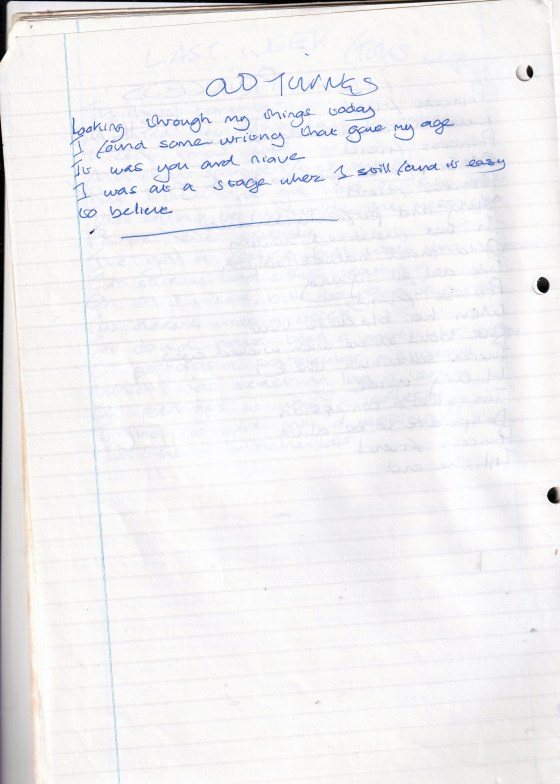 OLD THINGS
Looking through my things today
I found some writing that gave my age
It was you and niave
I was at a stage where I still found it easy
to believe